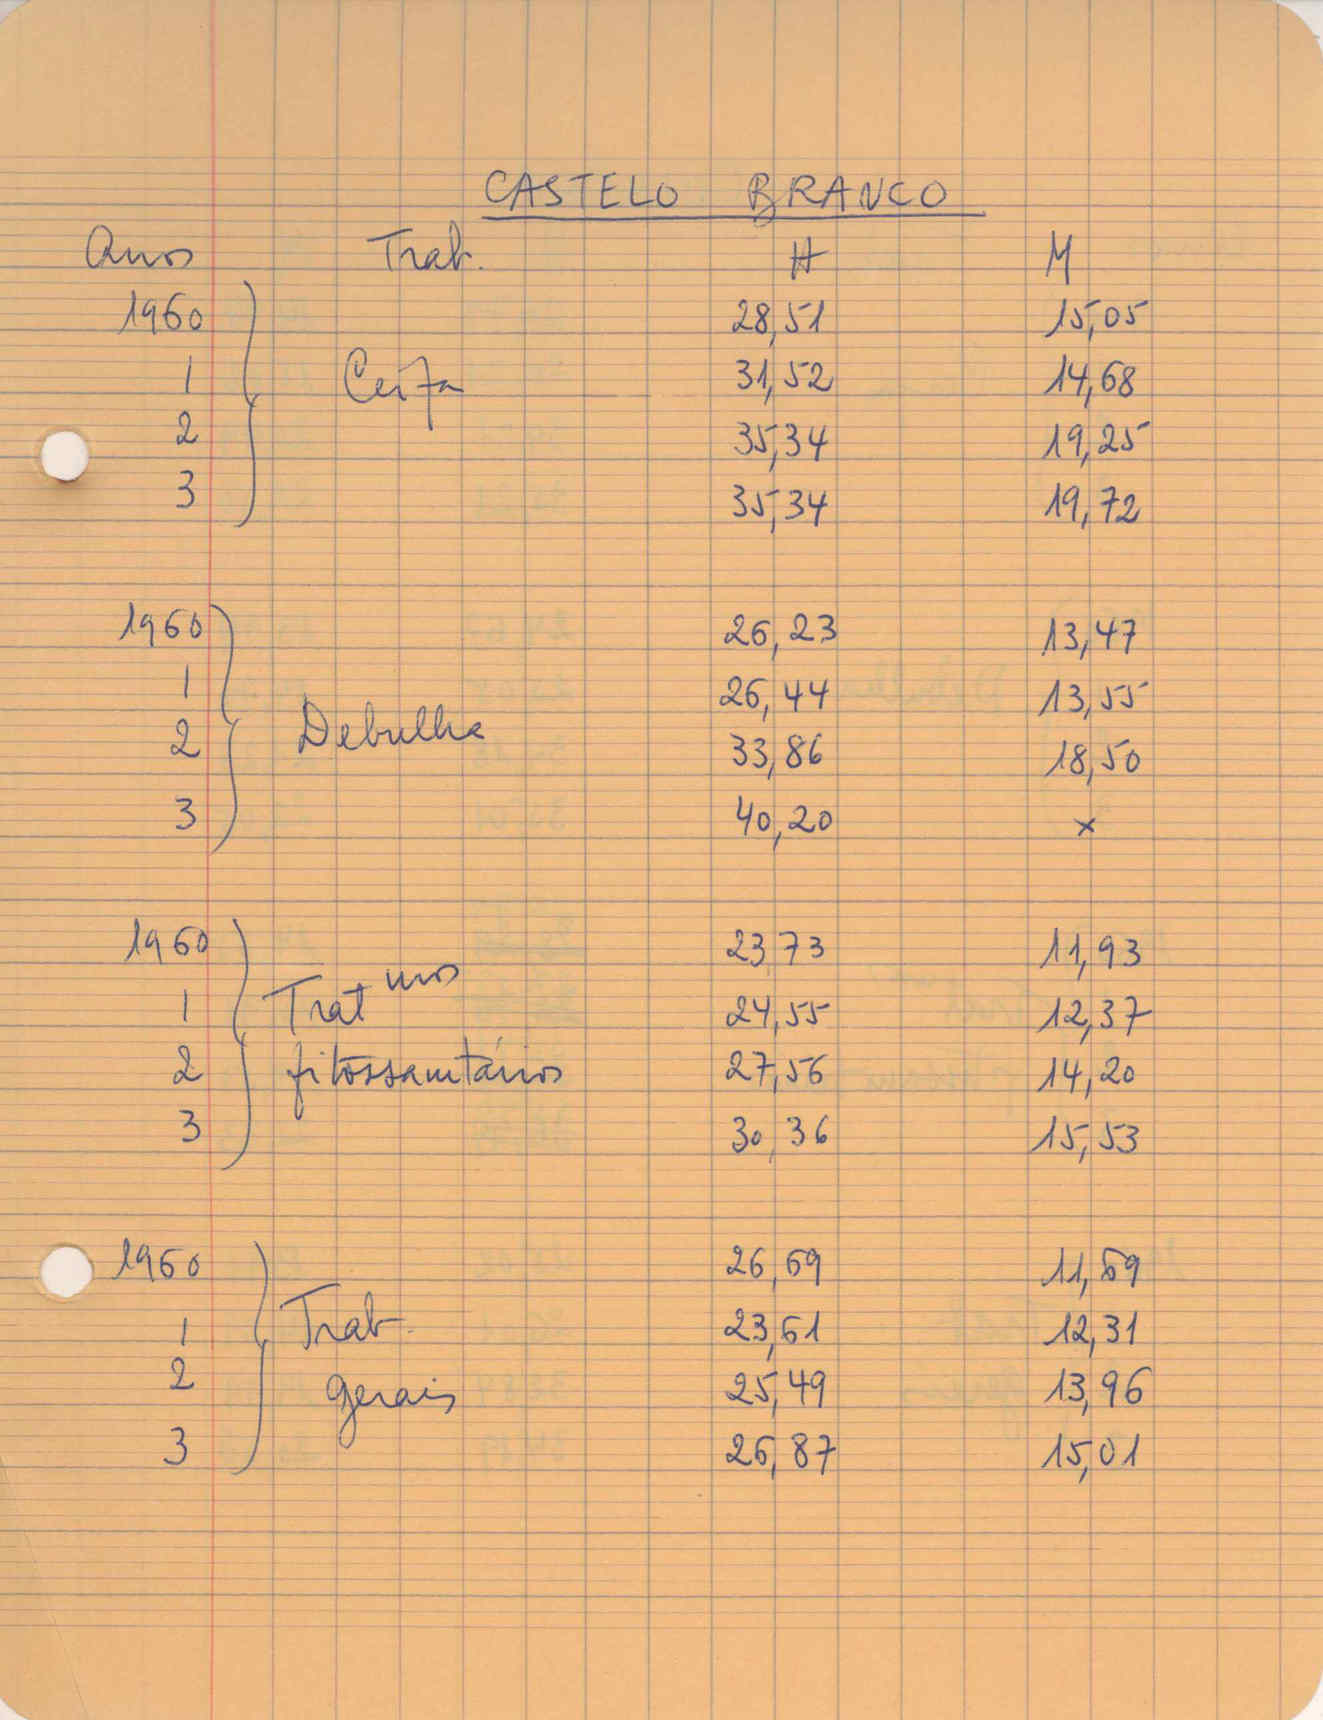 CASTELO BRANCO
Anos Trab. H M
1960 28,51 15,05
1 Ceifa 31,52 14,68
2 35,34 19,25
3 35,34 19,72
1960 26,23 13,47
1 26,44 13,55
2 Debulha 33,86 18,50
3 40,20 x
1960 23,73 11,93
1 Trat mos 24,55 12,37
2 fitossanitários 27,56 14,20
3 30,36 15,53
1960 26,69 11,69
1 Trab. 23,61 12,31
2 gerais 25,49 13,96
3 26,87 15,01